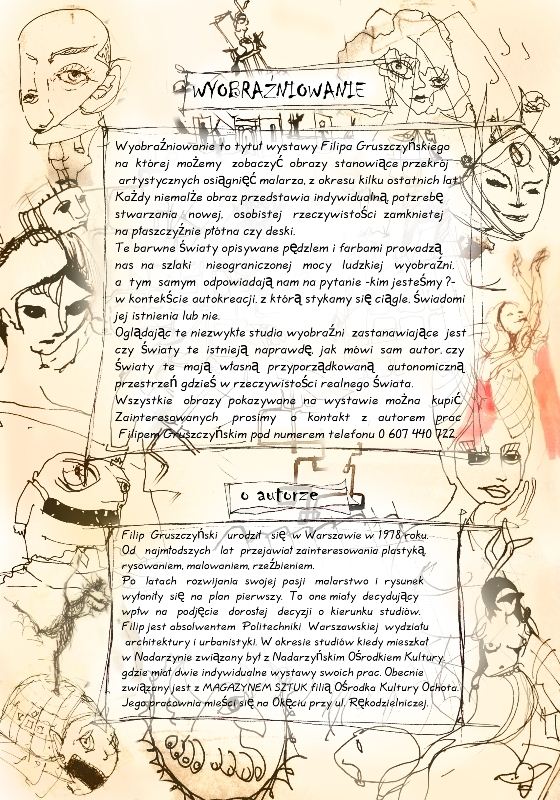 WYOBRAŹNIOWANIE
Wyobraźniowanie to tytuł wystawy Filipa Gruszczyńskiego
na której możemy zobaczyć obrazy stanowiące przekrój
artystycznych osiągnięć malarza, z okresu kilku ostatnich lat.
Każdy niemalże obraz przedstawia indywidualną potrzebę
stwarzania nowej, osobistej rzeczywistości zamkniętej
na płaszczyźnie płótna czy deski.
Te barwne światy opisywane pędzlem i farbami prowadzą
nas na szlaki nieograniczonej mocy ludzkiej wyobraźni.
a tym samym odpowiadają nam na pytanie -kim jesteśmy ?-
w kontekście autokreacji. z którą stykamy się ciągle. Świadomi
jej istnienia lub nie.
Oglądając te niezwykłe studia wyobraźni zastanawiające jest
czy światy te istnieją naprawdę. jak mówi sam autor. czy
światy te mają własną przyporządkowaną autonomiczną
przestrzeń gdzieś w rzeczywistości realnego świata.
Wszystkie obrazy pokazywane na wystawie można kupić
Zainteresowanych prosimy o kontakt z autorem prac
Filipem Gruszczyńskim pod numerem telefonu 0 607 440 722.
o autorze
Filip Gruszczyński urodził się w Warszawie w 1978 roku.
Od najmłodszych lat przejawiał zainteresowania plastyką,
rysowaniem, malowaniem, rzeźbieniem.
Po latach rozwijania swojej pasji malarstwo i rysunek
wyłoniły się na plan pierwszy. To one miały decydujący
wpłw na podjęcie dorosłej decyzji o kierunku studiów.
Filip jest absolwentem Politechniki Warszawskiej wydziału
architektury i urbanistyki. W okresie studiów kiedy mieszkał
w Nadarzynie związany był z Nadarzyńskim Ośrodkiem Kultury,
gdzie miał dwie indywidualne wystawy swoich prac. Obecnie
związany jest z MAGAZYNEM SZTUK filią Ośrodka Kultury Ochota.
Jego pracownia mieści się na Okęciu przy ul. Rękodzielniczej.